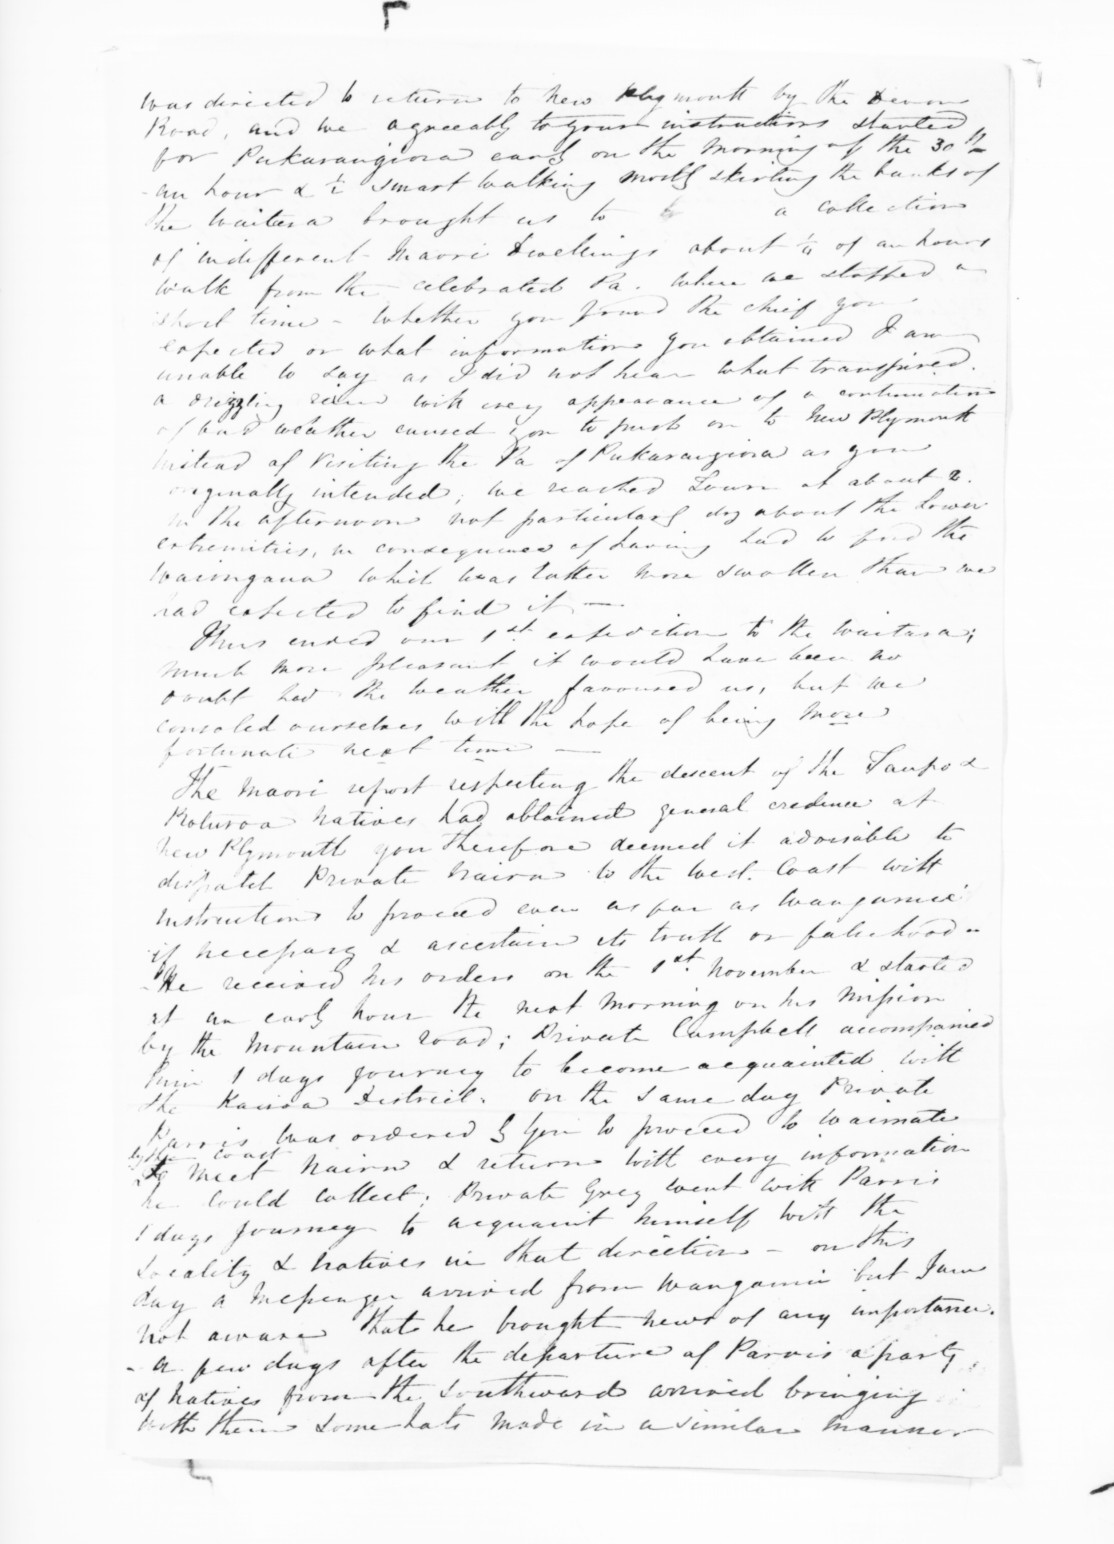 was directed to return to New Plymouth by the Devon
Road, and we agreeably to your instructions started
for Pukarangiora early on the morning of the 30th
an hour & ½ smart walking mostly skirting the banks of
the Waitera brought us to a collection
of indifferent Maori Dwellings about ¼ of an hours
walk from the celebrated Pa. where we stopped a
short time - Whether you found the chief you
expected or what information you obtained I am
unable to say as I did not hear what transpired.
a drizzling rain with every appearance of a continuation
of bad weather caused you to push on to New Plymouth
instead of visiting the Pa of Pukarangiora as you
originally intended; we reached Town at about 2.
in the afternoon not particularly dry about the lower
extremities, in consequence of having had to ford the
Waiongana which was rather more swollen than we
had expected to find it —
Thus ended our 1st expedition to the Waitara;
much more pleasant it would have been no
doubt had the weather favoured us, but we
consoled ourselves with the hope of being more
fortunate next time —
The Maori report respecting the descent of the Taupo &
Roturoa Natives had obtained general credence at
New Plymouth you therefore deemed it advisable to
dispatch Private Nairn to the West. Coast with
instructions to proceed even as far as Wanganui
if necessary & ascertain its truth or falsehood -
He received his orders on the 1st November & started
at an early hour the next morning on his mission
by the Mountain road; Private Campbell accompanied
him 1 days journey to become acquainted with
the Kairoa District. on the same day Private
Parris was ordered by you to proceed to Waimate
by the coast
To meet Nairn & return with every information
he could collect; Private Grey went with Parris
1 days journey to acquaint himself with the
Locality & Natives in that direction - on this
day a Messenger arrived from Wanganui but I am
not aware that he brought news of any importance.
- A few days after the departure of Parris a party
of Natives from the Southward arrived bringing
with them some hats made in a similar manner